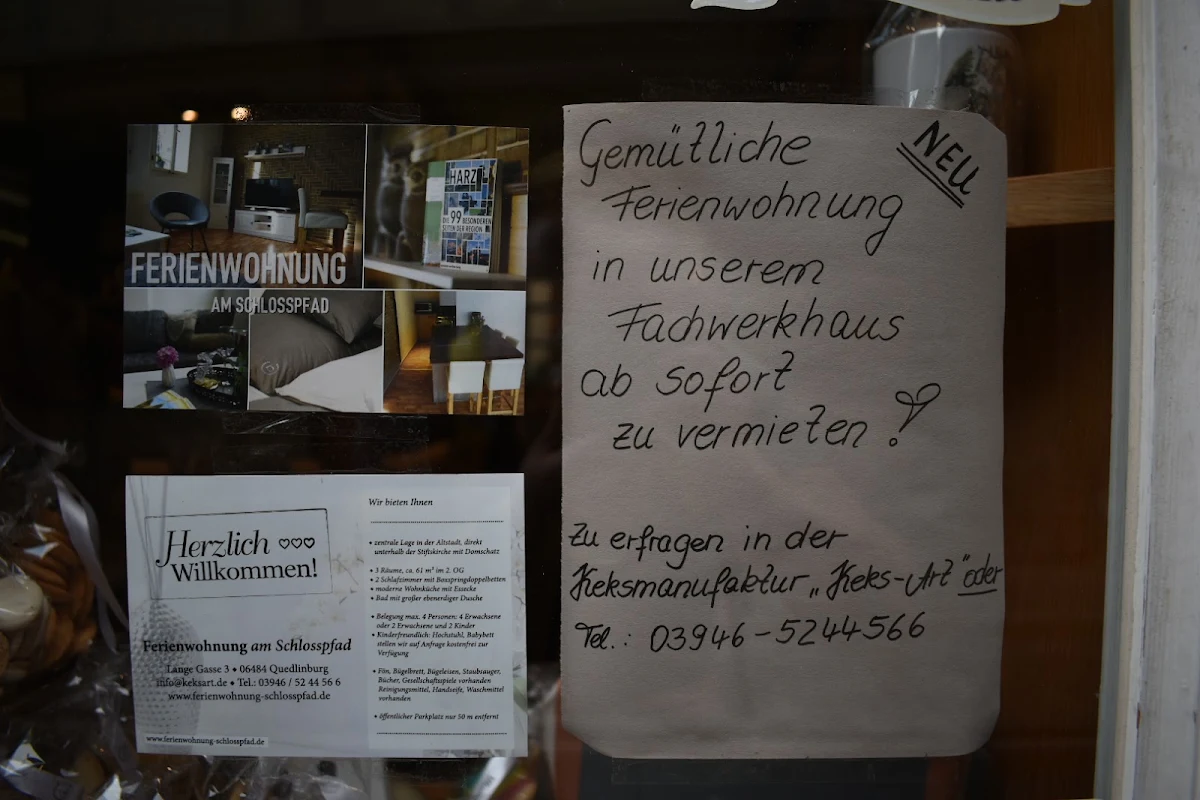 FERIENWOHNUNG
AM SCHLOSSPFAD
HARZ
DIE 99 BESONDEREN
SEITEN DER REGION
Herzlich ♡♡♡
Willkommen!
Ferienwohnung am Schlosspfad
Lange Gasse 3 • 06484 Quedlinburg
info@keksart.de • Tel.: 03946 / 52 44 56 6
www.ferienwohnung-schlosspfad.de
www.ferienwohnung-schlosspfad.de
Wir bieten Ihnen
• zentrale Lage in der Altstadt, direkt
unterhalb der Stiftskirche mit Domschatz
• 3 Räume, ca. 61 m² im 2. OG
• 2 Schlafzimmer mit Boxspringdoppelbetten
• moderne Wohnküche mit Essecke
• Bad mit großer ebenerdiger Dusche
• Belegung max. 4 Personen: 4 Erwachsene
oder 2 Erwachsene und 2 Kinder
• Kinderfreundlich: Hochstuhl, Babybett
stellen wir auf Anfrage kostenfrei zur
Verfügung
• Fön, Bügelbrett, Bügeleisen, Staubsauger,
Bücher, Gesellschaftsspiele vorhanden
Reinigungsmittel, Handseife, Waschmittel
vorhanden
• öffentlicher Parkplatz nur 50 m entfernt
NEU
Gemütliche
Ferienwohnung
in unserem
Fachwerkhaus
ab sofort
zu vermieten!
Zu erfragen in der
Keksmanufaktur „Keks-Art" oder
Tel.: 03946-5244566